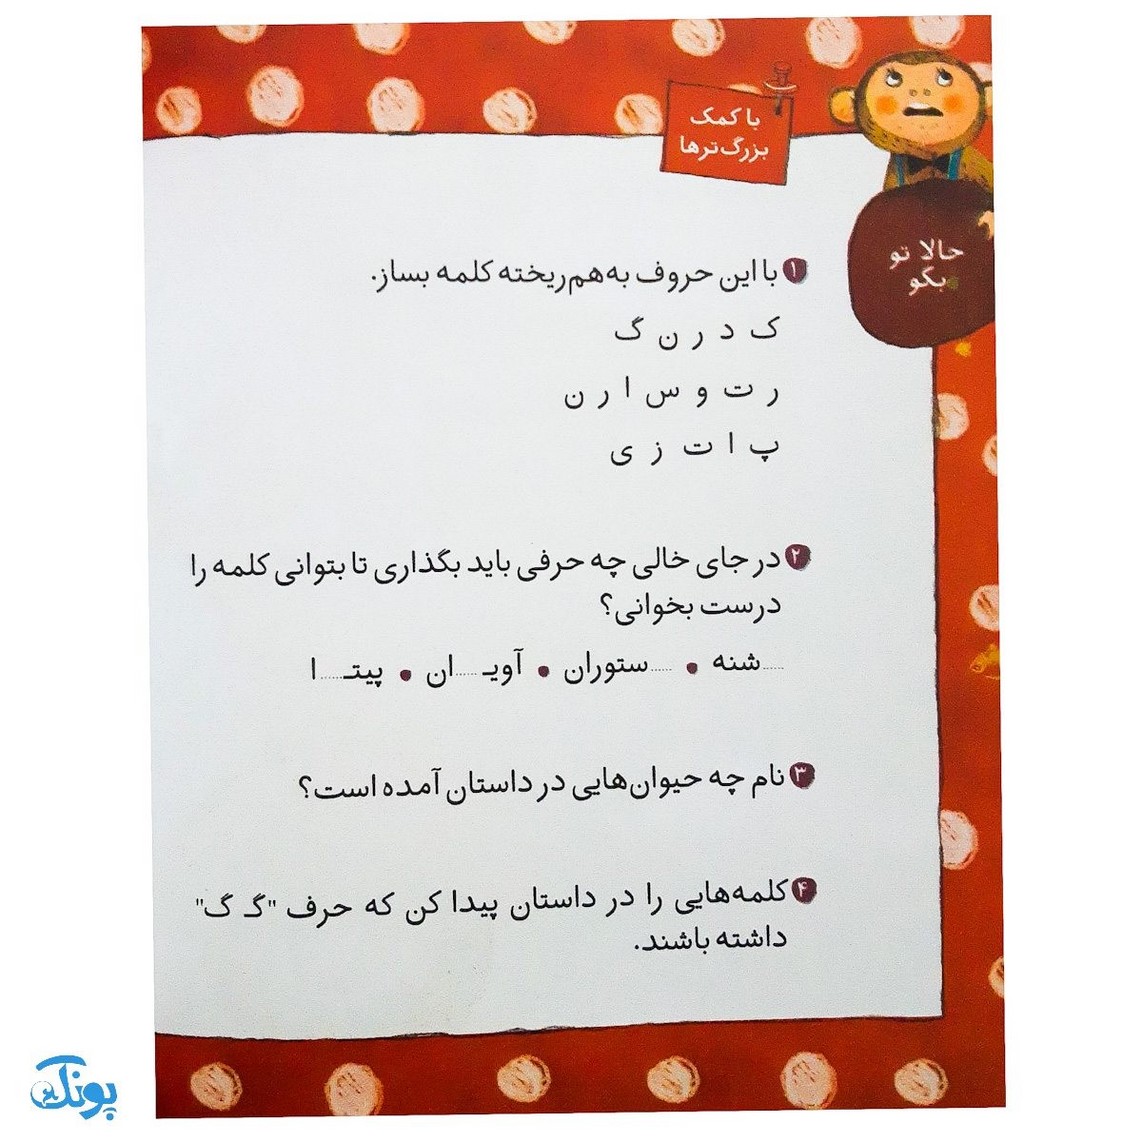 با کمک
بزرگ‌ترها
حالا تو
بگو
۱ با این حروف به‌هم‌ریخته کلمه بساز.
ک د ر ن گ
ر ت و س ا ر ن
پ ا ت ز ی
۲ در جای خالی چه حرفی باید بگذاری تا بتوانی کلمه را
درست بخوانی؟
.....شنه • .....ستوران • آویـ.....ان • پیتـ.....ا
۳ نام چه حیوان‌هایی در داستان آمده است؟
۴ کلمه‌هایی را در داستان پیدا کن که حرف "گـ گ"
داشته باشند.
پونک